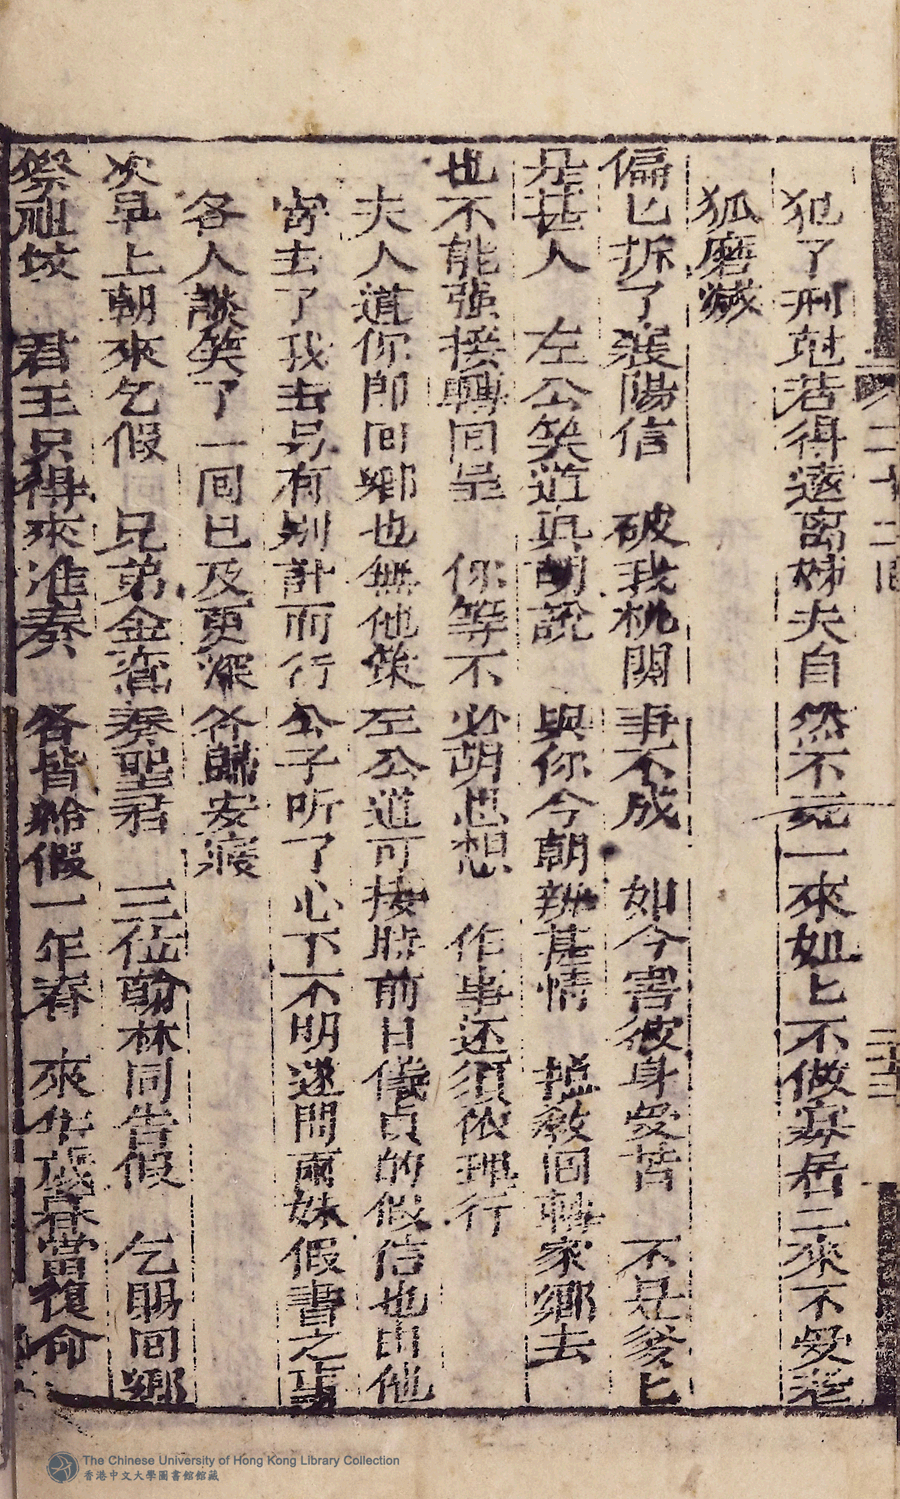 二十二回
二十三
犯了刑尅若得遠离姊夫自然不克一來如匕不做寡居二來不受老
狐磨滅
偏匕拆了襄陽信　破我机関事不成　如今害彼身受苦　不是爹匕
是甚人　左公笑道真胡說　與你今朝辨甚情　搵教回轉家鄉去
也不能強接轉回呈　你等不必胡思想　作事还須依理行
夫人道你即回鄉也無他策左公道可按時前日儀貞的假信也由他
寄去了我去另有別計而行公子听了心下不明遂問兩妹假書之事
各人談笑了一回已及更深各歸安寢
次早上朝來乞假　兄弟金鸞奏聖君　三位翰林同告假　乞賜回鄉
祭祖墳　君王只得來准奏　各皆給假一年春　來年歲暮當復命
The Chinese University of Hong Kong Library Collection
香港中文大學圖書館館藏